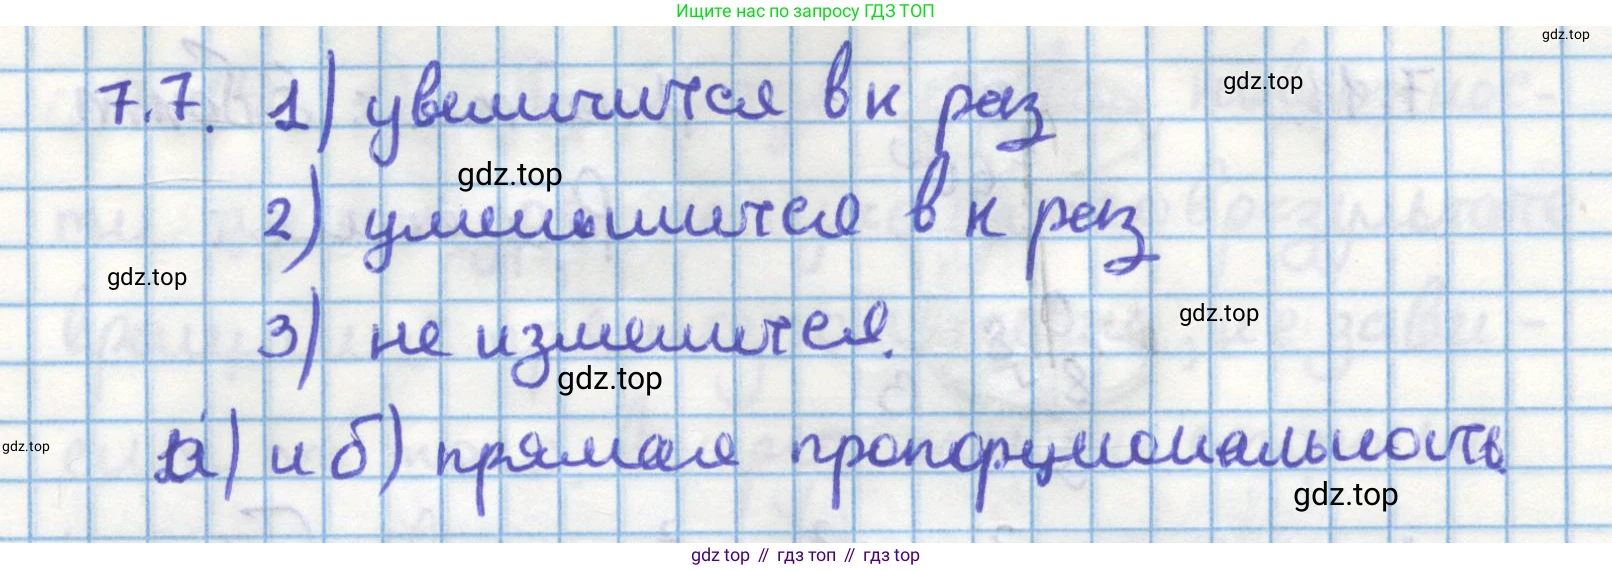 Ищите нас по запросу ГДЗ ТОП
gdz.top
7.7. 1) увеличится в к раз
gdz.top
gdz.top
2) уменьшится в к раз
gdz.top
gdz.top
3) не изменится.
gdz.top
а) и б) прямая пропорциональность.
gdz.top
gdz.top
gdz top // гдз топ // гдз top